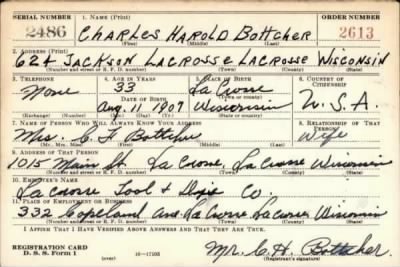 SERIAL NUMBER 1. NAME (Print) ORDER NUMBER
2486 CHARLES HAROLD BOTTCHER 2613
(First) (Middle) (Last)
2. ADDRESS (Print)
624 JACKSON LACROSSE LACROSSE WISCONSIN
(Number and street or R. F. D. number) (Town) (County) (State)
3. TELEPHONE 4. AGE IN YEARS 5. PLACE OF BIRTH 6. COUNTRY OF CITIZENSHIP
None 33 La Crosse
DATE OF BIRTH (Town or county)
Aug. 11 1907 Wisconsin U.S.A.
(Exchange) (Number) (Mo.) (Day) (Yr.) (State or country)
7. NAME OF PERSON WHO WILL ALWAYS KNOW YOUR ADDRESS 8. RELATIONSHIP OF THAT PERSON
Mrs. C H Bottcher Wife
(Mr., Mrs., Miss) (First) (Middle) (Last)
9. ADDRESS OF THAT PERSON
1015 Main St. La Crosse, La Crosse Wisconsin
(Number and street or R. F. D. number) (Town) (County) (State)
10. EMPLOYER'S NAME
La Crosse Tool & Die Co.
11. PLACE OF EMPLOYMENT OR BUSINESS
332 Copeland Ave La Crosse La Crosse Wisconsin
(Number and street or R. F. D. number) (Town) (County) (State)
I AFFIRM THAT I HAVE VERIFIED ABOVE ANSWERS AND THAT THEY ARE TRUE.
REGISTRATION CARD
D. S. S. Form 1 (over) 16—17105 Mr. C. H. Bottcher
(Registrant's signature)